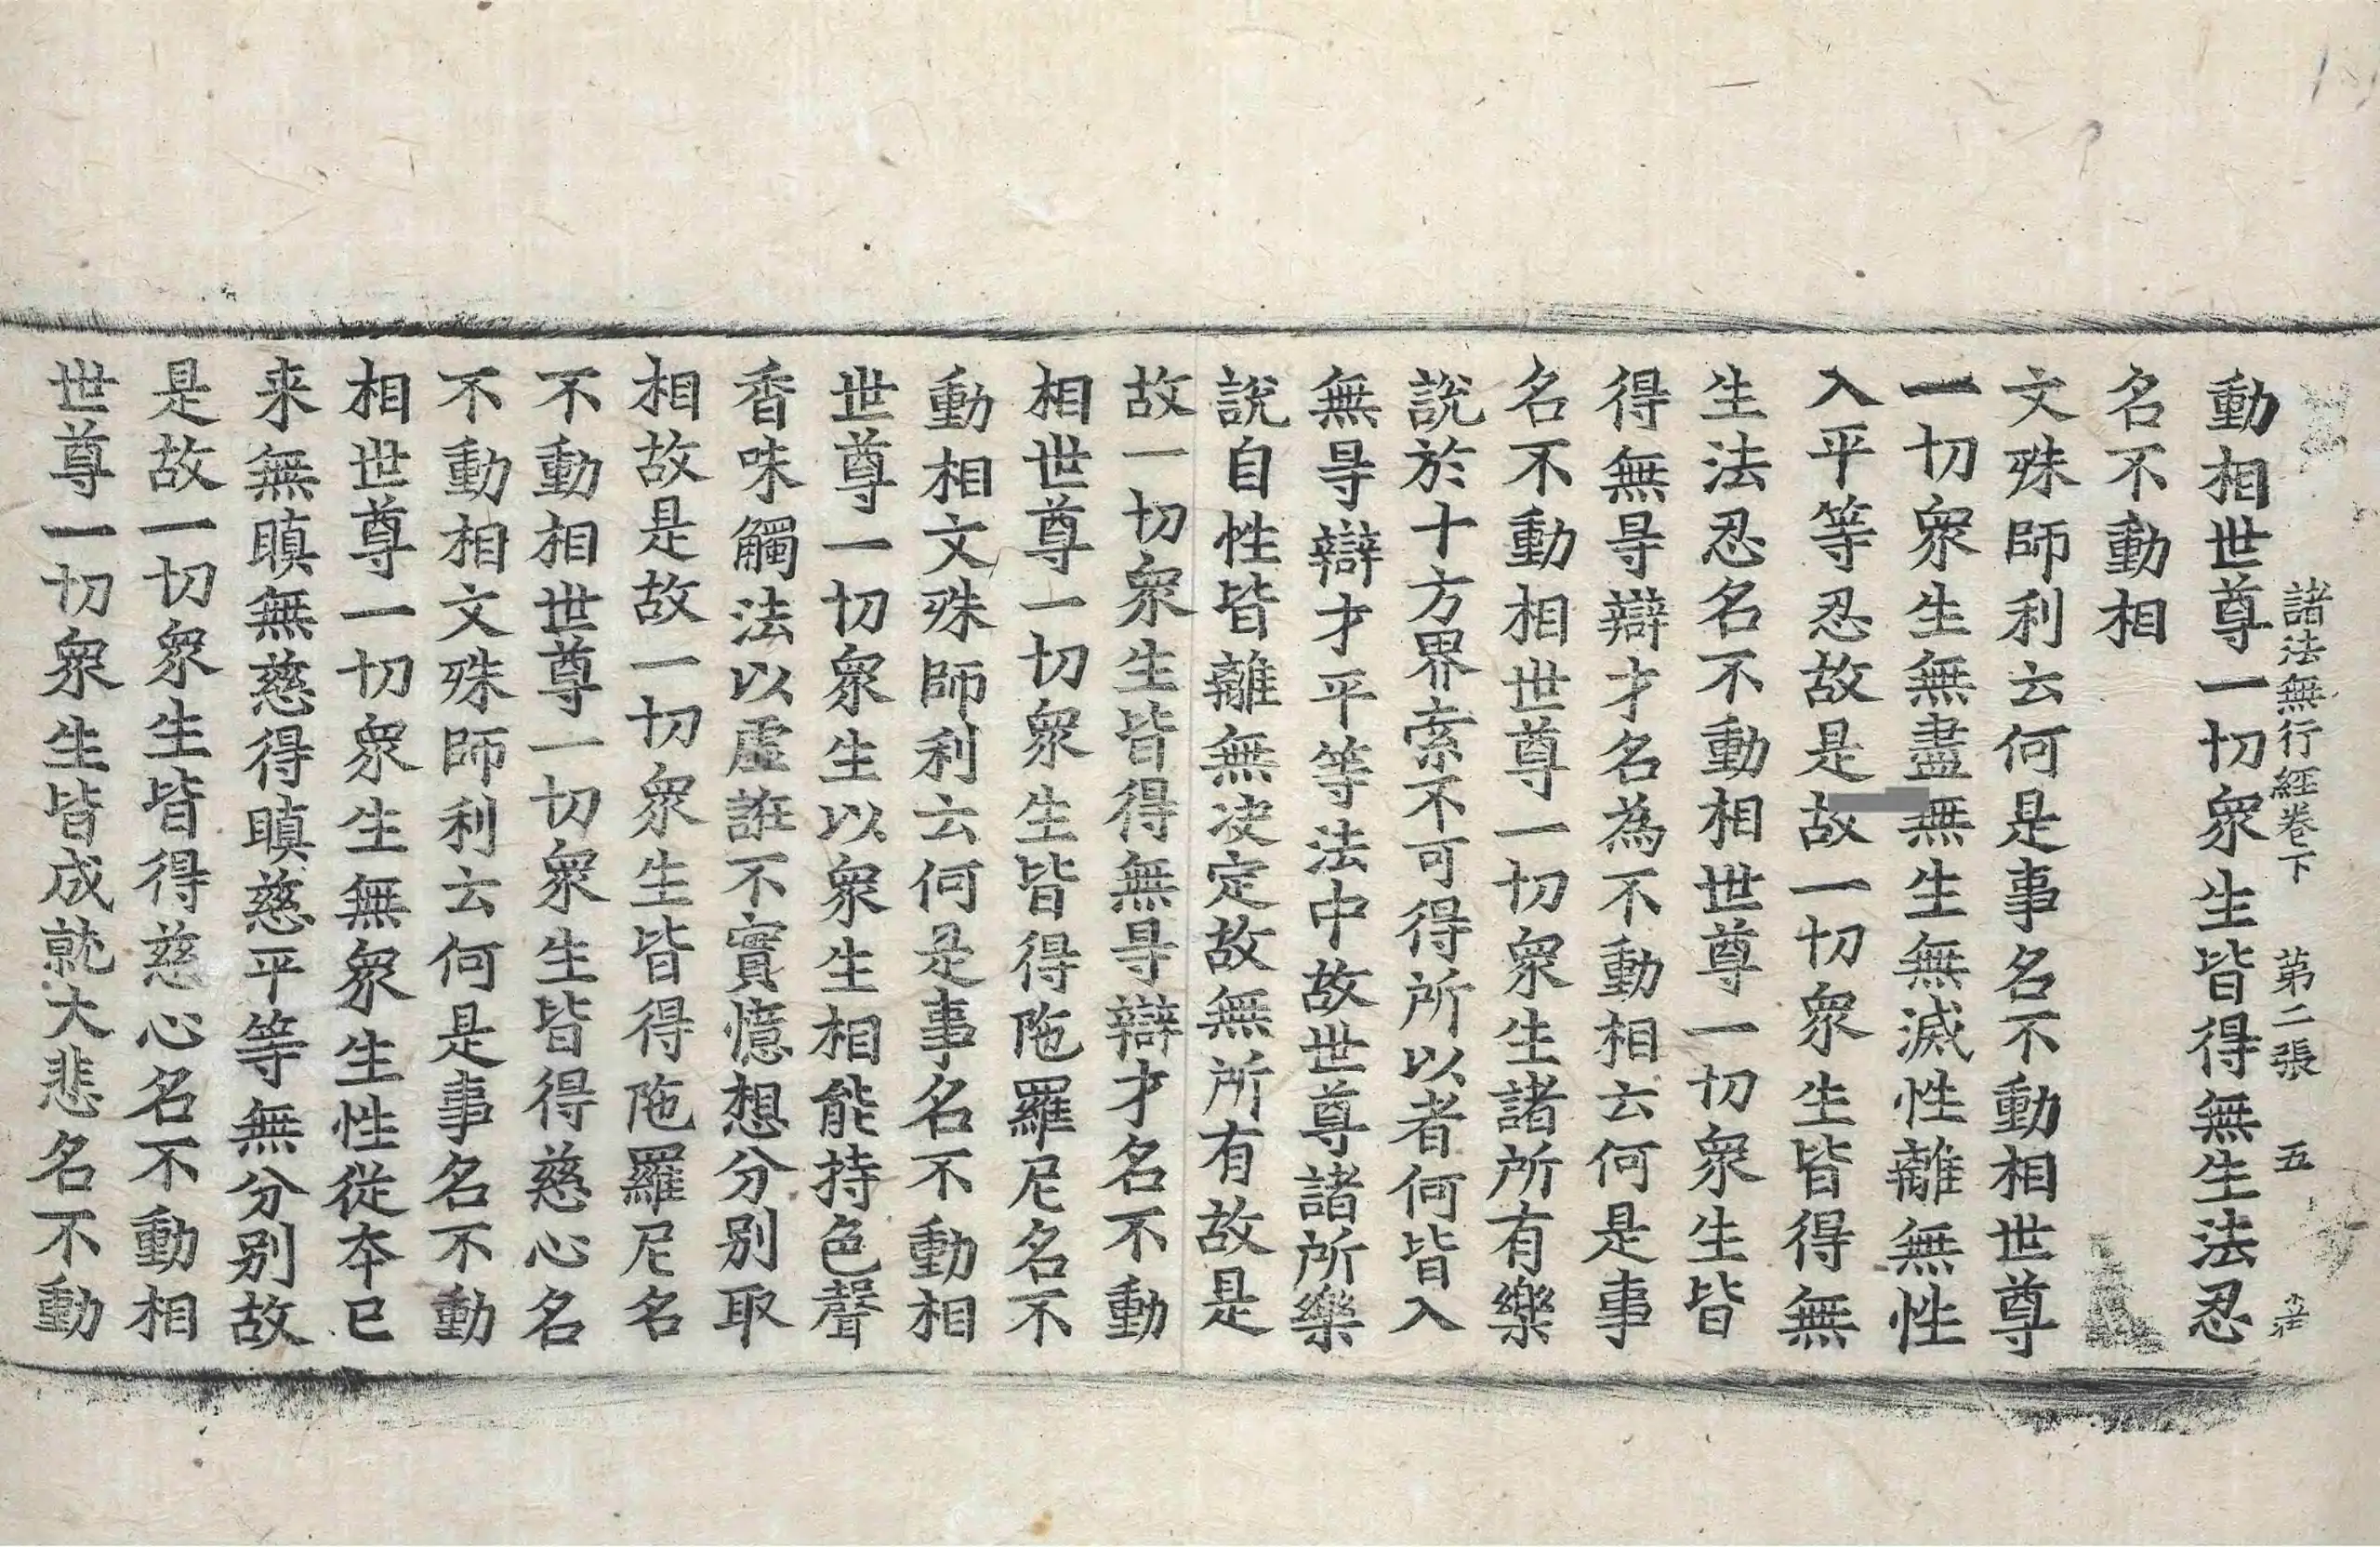 諸法無行経卷下 第二張 五
動相世尊一切衆生皆得無生法忍
名不動相
文殊師利云何是事名不動相世尊
一切衆生無盡無生無滅性離無性
入平等忍故是故一切衆生皆得無
生法忍名不動相世尊一切衆生皆
得無㝵辯才名為不動相云何是事
名不動相世尊一切衆生諸所有樂
說於十方界索不可得所以者何皆入
無㝵辯才平等法中故世尊諸所樂
說自性皆離無决定故無所有故是
故一切衆生皆得無㝵辯才名不動
相世尊一切衆生皆得陁羅尼名不
動相文殊師利云何是事名不動相
世尊一切衆生以衆生相能持色聲
香味觸法以虛誑不實憶想分別取
相故是故一切衆生皆得陁羅尼名
不動相世尊一切衆生皆得慈心名
不動相文殊師利云何是事名不動
相世尊一切衆生無衆生性從夲已
来無瞋無慈得瞋慈平等無分別故
是故一切衆生皆得慈心名不動相
世尊一切衆生皆成就大悲名不動